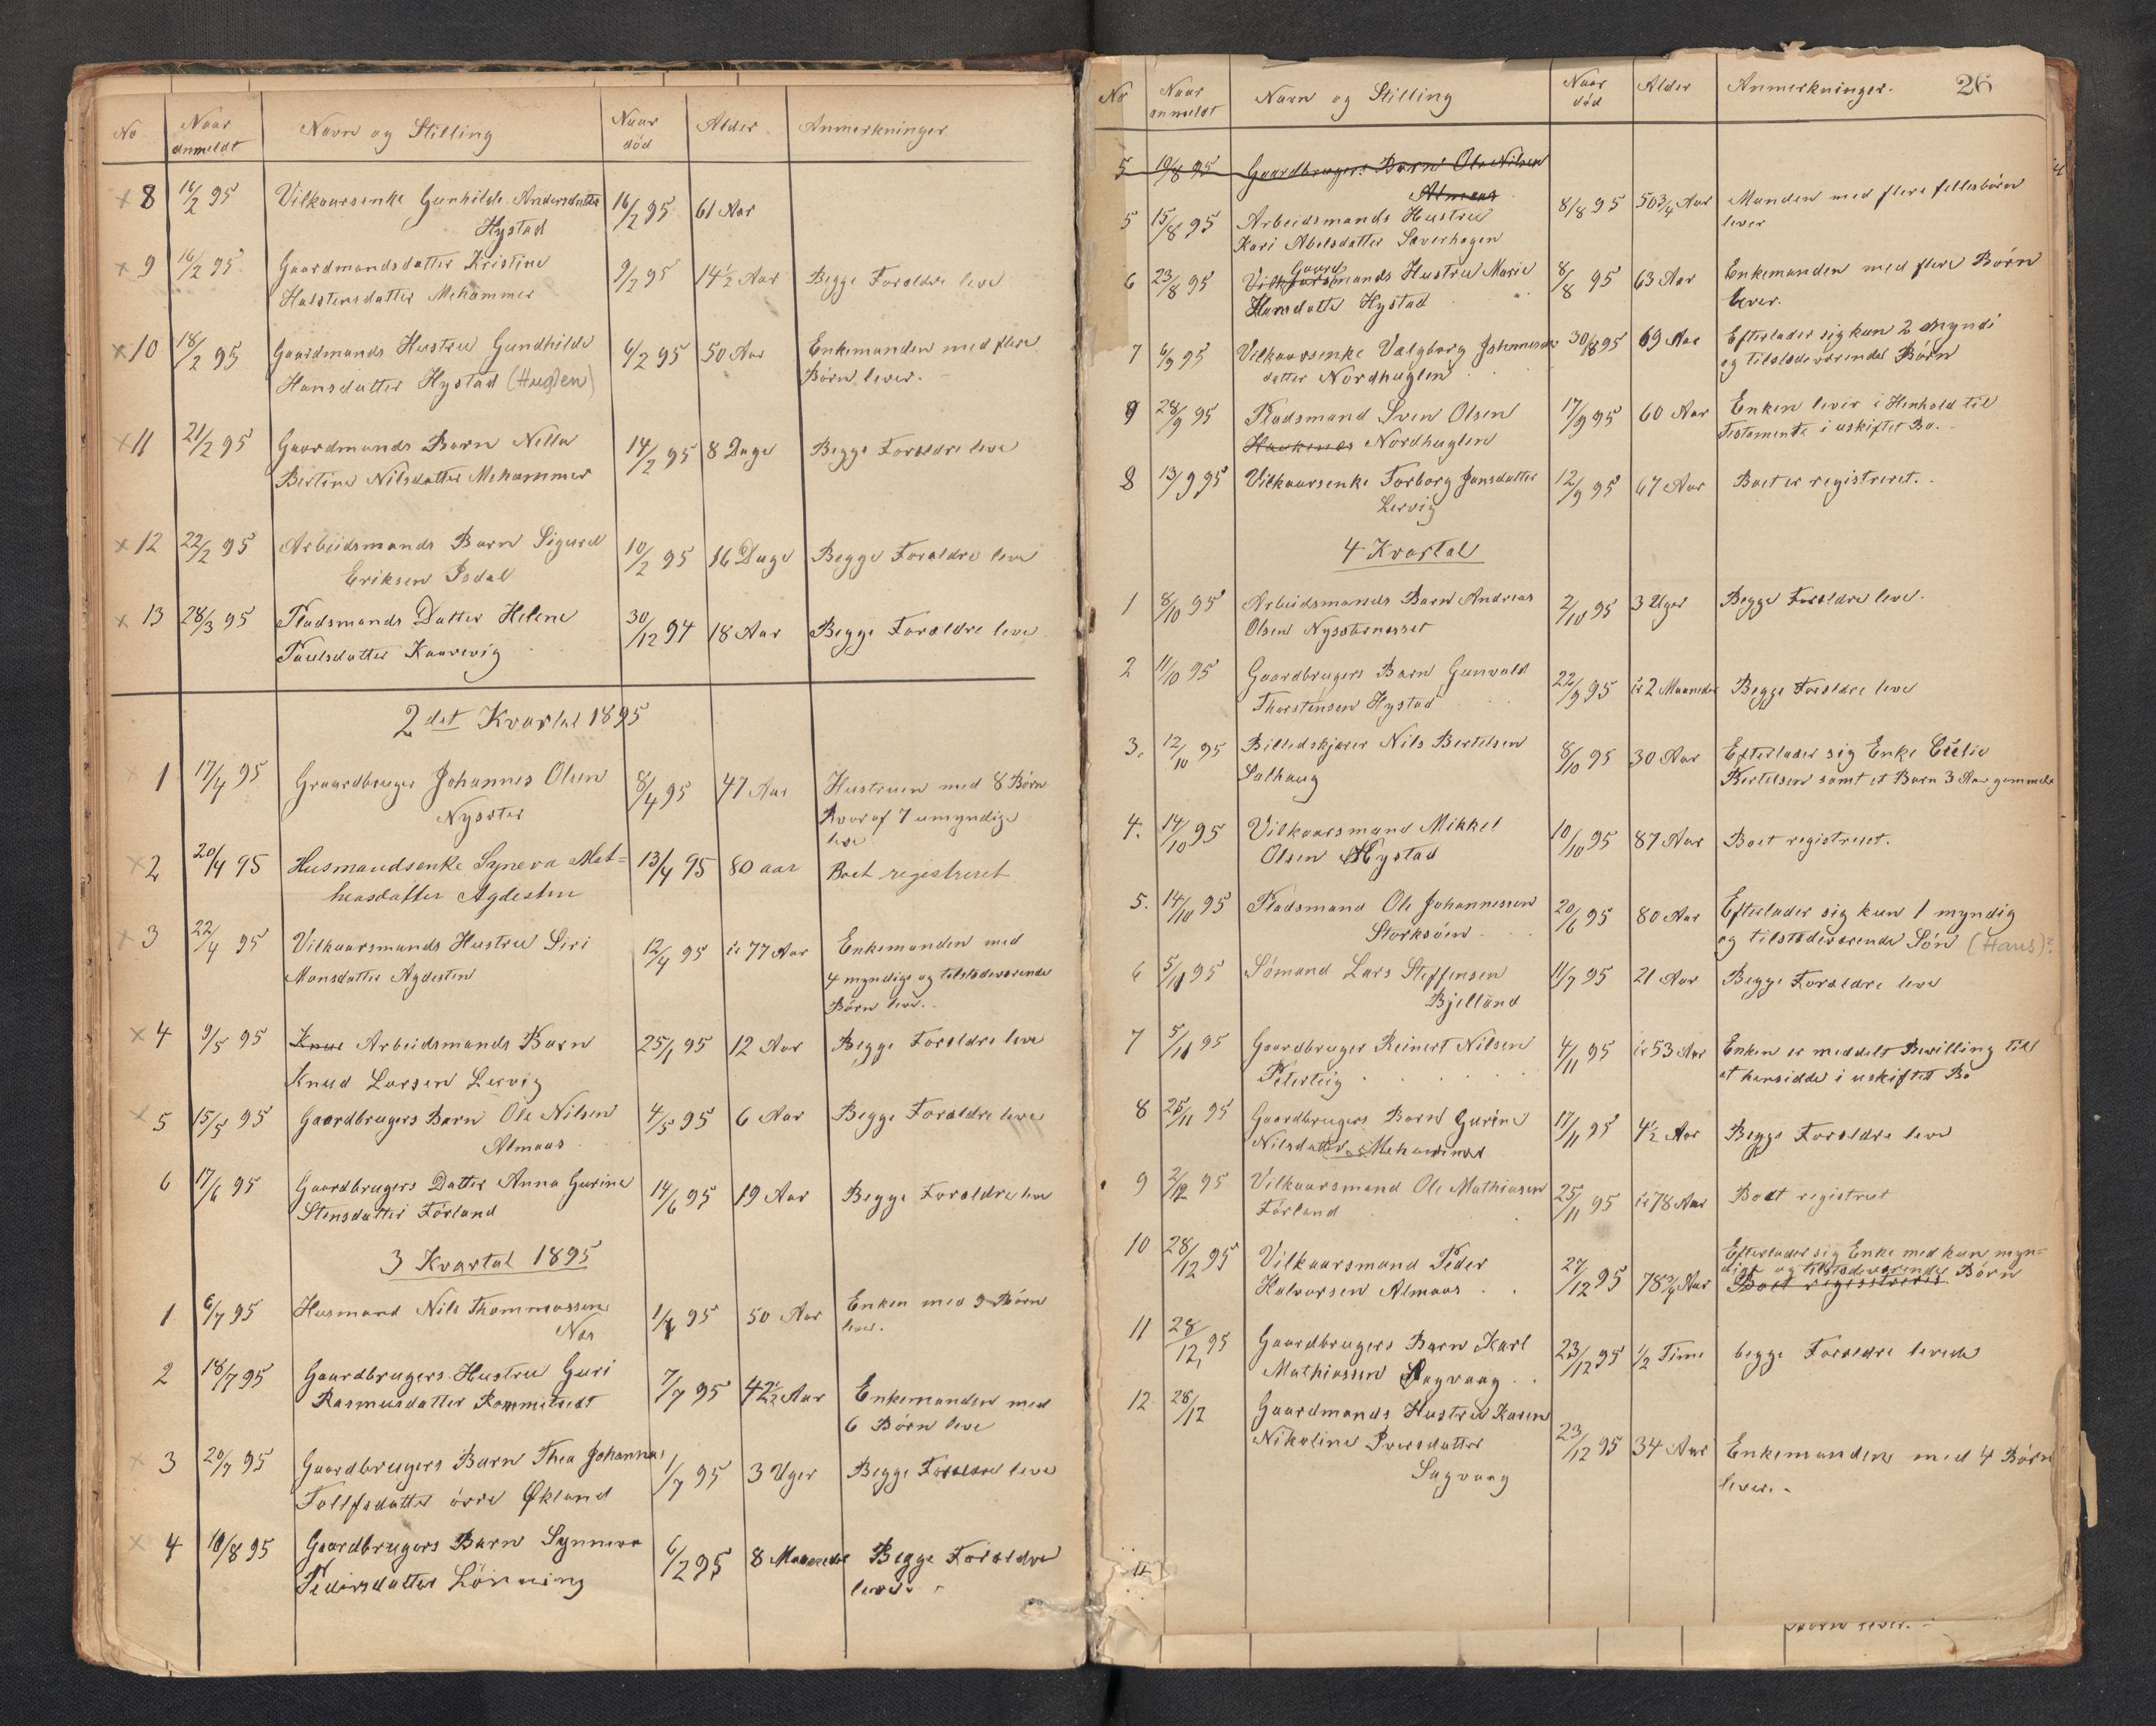 No Naar anmeldt Navn og Stilling Naar död Alder Anmerkninger
8 16/2 95 Vilkaarsenke Gunhilde Andersdatter 16/2 95 61 Aar
Hystad
9 16/2 95 Gaardmandsdatter Kristine 9/2 95 14 1/2 Aar Begge Forældre leve
Halstensdatter Mehammer
10 18/2 95 Gaardmands Hustru Gundhilde 6/2 95 50 Aar Enkemanden med flere
Hansdatter Hystad (Huglen) Börn lever.
11 21/2 95 Gaardmands Barn Nella 14/2 95 8 Dage Begge Forældre leve
Bertine Nilsdatter Mehammer
12 22/2 95 Arbeidsmands Barn Sigurd 10/2 95 16 Dage Begge Forældre leve
Eriksen Isdal
13 28/3 95 Pladsmands Datter Helene 30/12 94 18 Aar Begge Forældre leve
Paulsdatter Kaarevig
2det Kvartal 1895
1 17/4 95 Graardbruger Johannes Olsen 8/4 95 47 Aar Hustruen med 8 Börn
Nysæter hvoraf 7 umyndige
leve
2 20/4 95 Husmandsenke Syneva Mat= 13/4 95 80 aar Boet registreret
heasdatter Agdesten
3 22/4 95 Vilkaarsmands Hustru Siri 12/4 95 ir 77 Aar Enkemanden med
Monsdatter Agdesten 4 myndige og tilstedeværende
Börn leve.
4 9/5 95 Knut Arbeidsmands Barn 25/1 95 12 Aar Begge Forældre leve
Knud Larsen Lervig
5 15/5 95 Gaardbrugers Barn Ole Nilsen 4/5 95 6 Aar Begge Forældre leve
Almaas
6 17/6 95 Gaardbrugers Datter Anna Gurine 14/6 95 19 Aar Begge Forældre leve
Stensdatter Förland
3 Kvartal 1895
1 6/7 95 Husmand Nils Thommassen 50 Aar Enken med 9 Börn
Næs lever.
2 18/7 95 Gaardbrugers Hustru Guri 7/7 95 42 1/2 Aar Enkemanden med
Rasmusdatter Rommetvedt 6 Börn leve
3 20/7 95 Gaardbrugers Barn Thea Johanna 1/7 95 3 Uger Begge Forældre leve
Tollfsdatter övre Økland
4 10/8 95 Gaardbrugers Barn Synneva 6/2 95 8 Maaneder Begge Forældre
Pedersdatter Lönning leve.
No Naar anmeldt Navn og Stilling Naar död Alder Anmerkninger. 26
5 10/8 95 Gaardbrugers Barn Ole Nilsen
Almaas
5 15/8 95 Arbeidsmands Hustru 8/8 95 50 3/4 Aar Manden med flere fellesbörn
Kari Abelsdatter Sæverhagen lever
Gaard
6 23/8 95 Vilkaarsmands Hustru Marie 8/8 95 63 Aar Enkemanden med flere Börn
Hansdatter Hystad lever.
7 6/9 95 Vilkaarsenke Valgborg Johannes 30/8 95 69 Aar Efterlader sig kun 2 myndi
datter Nordhuglen og tilstedeværende Börn
9 28/9 95 Pladsmand Sven Olsen 17/9 95 60 Aar Enken lever i Henhold til
Haukenes Nordhuglen Testamente i uskiftet Bo.
8 13/9 95 Vilkaarsenke Torborg Jansdatter 12/9 95 67 Aar Boet er registreret.
Lervig
4 Kvartal
1 8/10 95 Arbeidsmands Barn Andreas 2/10 95 3 Uger Begge Forældre leve.
Olsen Nysæternesset
2 11/10 95 Gaardbrugers Barn Gunvald 22/9 95 ir 2 Maaneder Begge Forældre leve
Thorstensen Hystad
3. 12/10 95 Billedskjærer Nils Bertelsen 8/10 95 30 Aar Efterlader sig Enke Cecilie
Solhaug Bertelsen samt et Barn 3 Aar gammel
4. 14/10 95 Vilkaarsmand Mikkel 10/10 95 87 Aar Boet registreret.
Olsen Hystad
5. 14/10 95 Pladsmand Ole Johannessen 20/6 95 80 Aar Efterlader sig kun 1 myndig
Storksöen og tilstedeværende Sön (Hans)?
6 5/11 95 Sömand Lars Steffensen 11/7 95 21 Aar Begge Forældre leve
Bjelland
7 5/11 95 Gaardbruger Reinert Nilsen 4/11 95 ir 53 Aar Enken er meddelt Bevilling til
Peterteig at hensidde i uskiftet Bo
8 25/11 95 Gaardbrugers Barn Gurine 17/11 95 4 1/2 Aar Begge Forældre leve
Nilsdatter Mehammer
9 2/12 95 Vilkaarsmand Ole Mathiasen 25/11 95 ir 78 Aar Boet registreret
Förland
Efterlader sig Enke med kun myn=
10 28/12 95 Vilkaarsmand Peder 27/12 95 78 3/4 Aar dige og tilstedeværende Börn
Halvorsen Almaas Boet registreres
11 28/12 95 Gaardbrugers Barn Karl 23/12 95 1/2 Time begge Forældre levede
Mathiassen Sagvaag
12 28/12 Gaardmands Hustru Karen
Nikoline Iversdatter 23/12 95 34 Aar Enkemanden med 4 Börn
Sagvaag lever.
Börn lever.